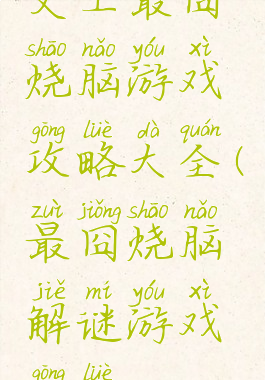 史上最囧
shāo nǎo yóu xì
烧脑游戏
gōng lüè dà quán
攻略大全(
zuì jiǒng shāo nǎo
最囧烧脑
jiě mí yóu xì
解谜游戏
gōng lüè